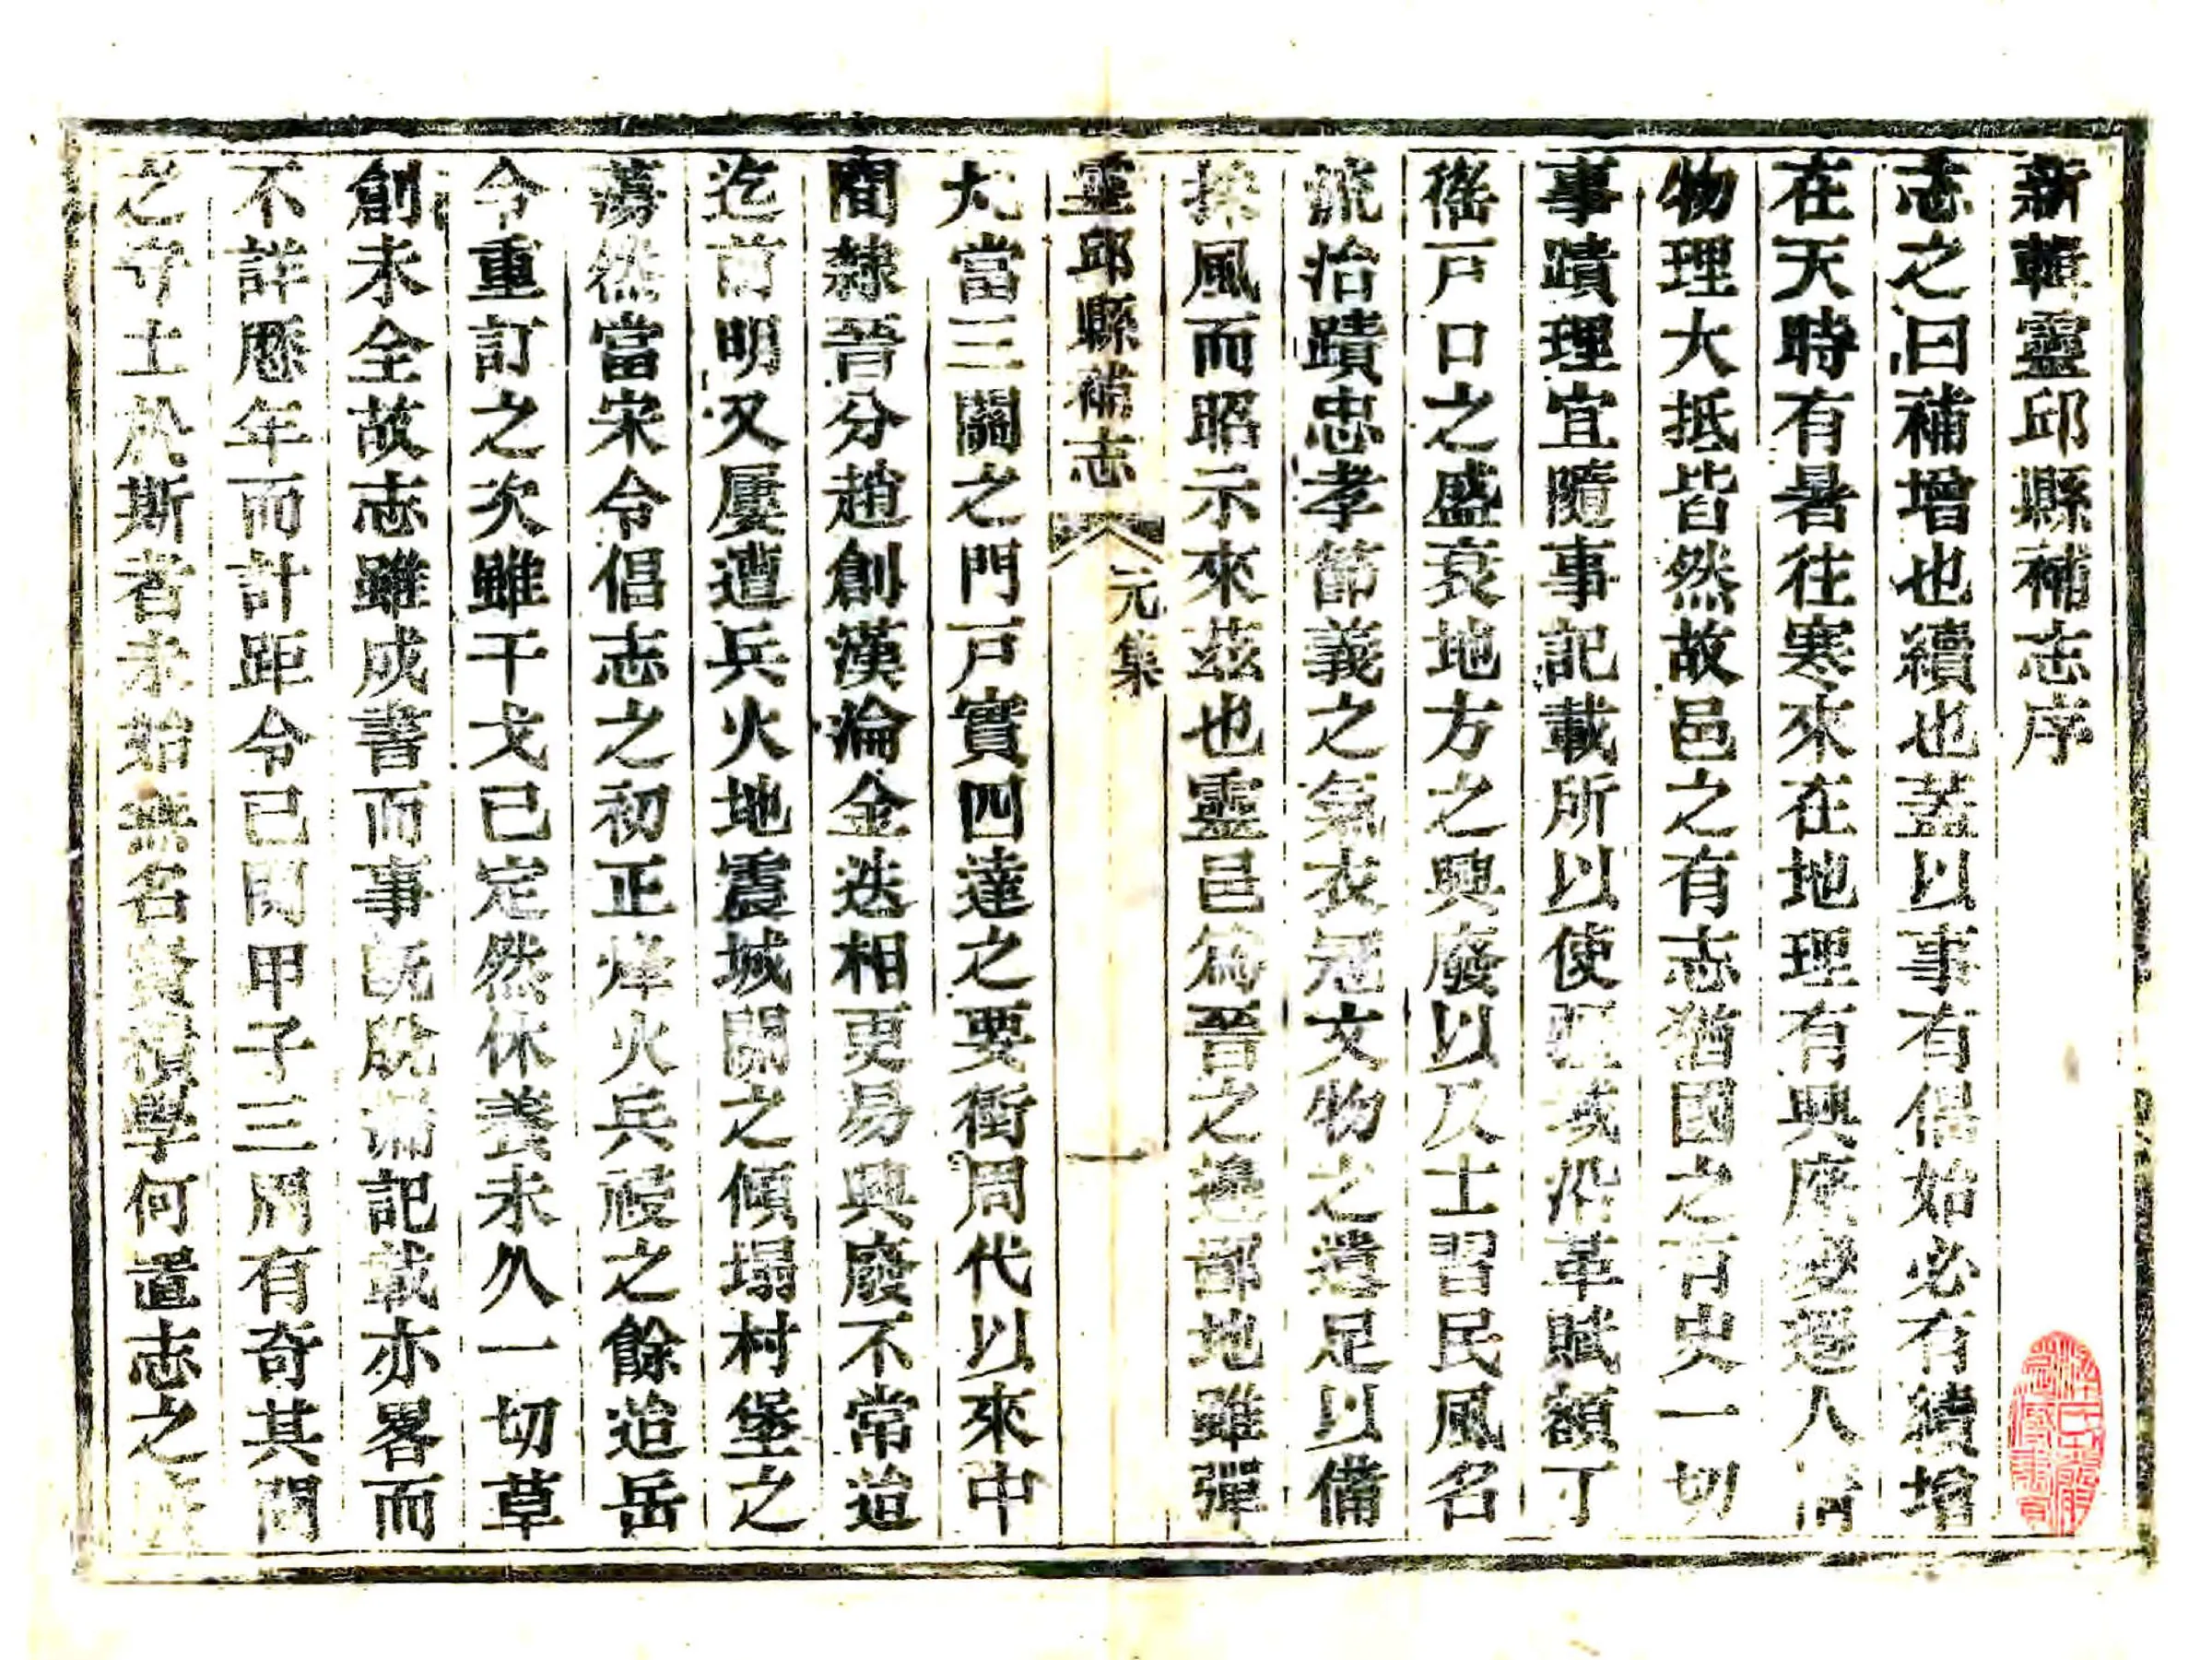 新輯靈邱縣補志序
志之曰補增也續也蓋以事有偶始必有續增
在天時有暑往寒來在地理有興廢變遷人情
物理大抵皆然故邑之有志猶國之有史一切
事蹟理宜隨事記載所以使疆域沿革賦額丁
徭戸口之盛衰地方之興廢以及士習民風名
流治蹟忠孝節義之氣衣冠文物之遺足以備
採風而昭示來茲也靈邑為晉之邊鄙地雖彈
靈邱縣補志
元集
一
丸當三關之門戸實四達之要衝周代以來中
間隸晉分趙創漢淪金迭相更易興廢不常迨
迄前明又屢遭兵火地震城關之傾塌村堡之
蕩然當宋令倡志之初正烽火兵祲之餘迨岳
令重訂之次雖干戈已定然休養未久一切草
創未全故志雖成書而事既脫漏記載亦畧而
不詳歷年而計距今已閱甲子三周有奇其間
之守土於斯者未始無名賢積學何置志之